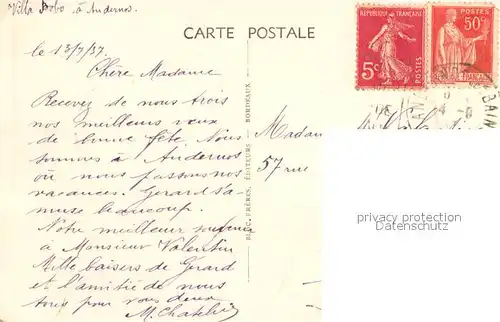 Villa Bobo à Andernos.
CARTE POSTALE
le 13/7/37.
Chère Madame
Recevez de nous trois
nos meilleurs vœux
de bonne fête. Nous
sommes à Andernos
où nous passons nos
vacances. Gérard s'a
muse beaucoup.
Notre meilleur souvenir
à Monsieur Valentin
Mille baisers de Gérard
et l'amitié de nous
tous pour vous deux
M. Chatelin
BLOC FRÈRES, ÉDITEURS BORDEAUX
REPUBLIQUE FRANÇAISE
5c
POSTES
POSTES
50c
REPUBLIQUE FRANÇAISE
BAIN
Madam
57 rue
privacy protection
Datenschutz